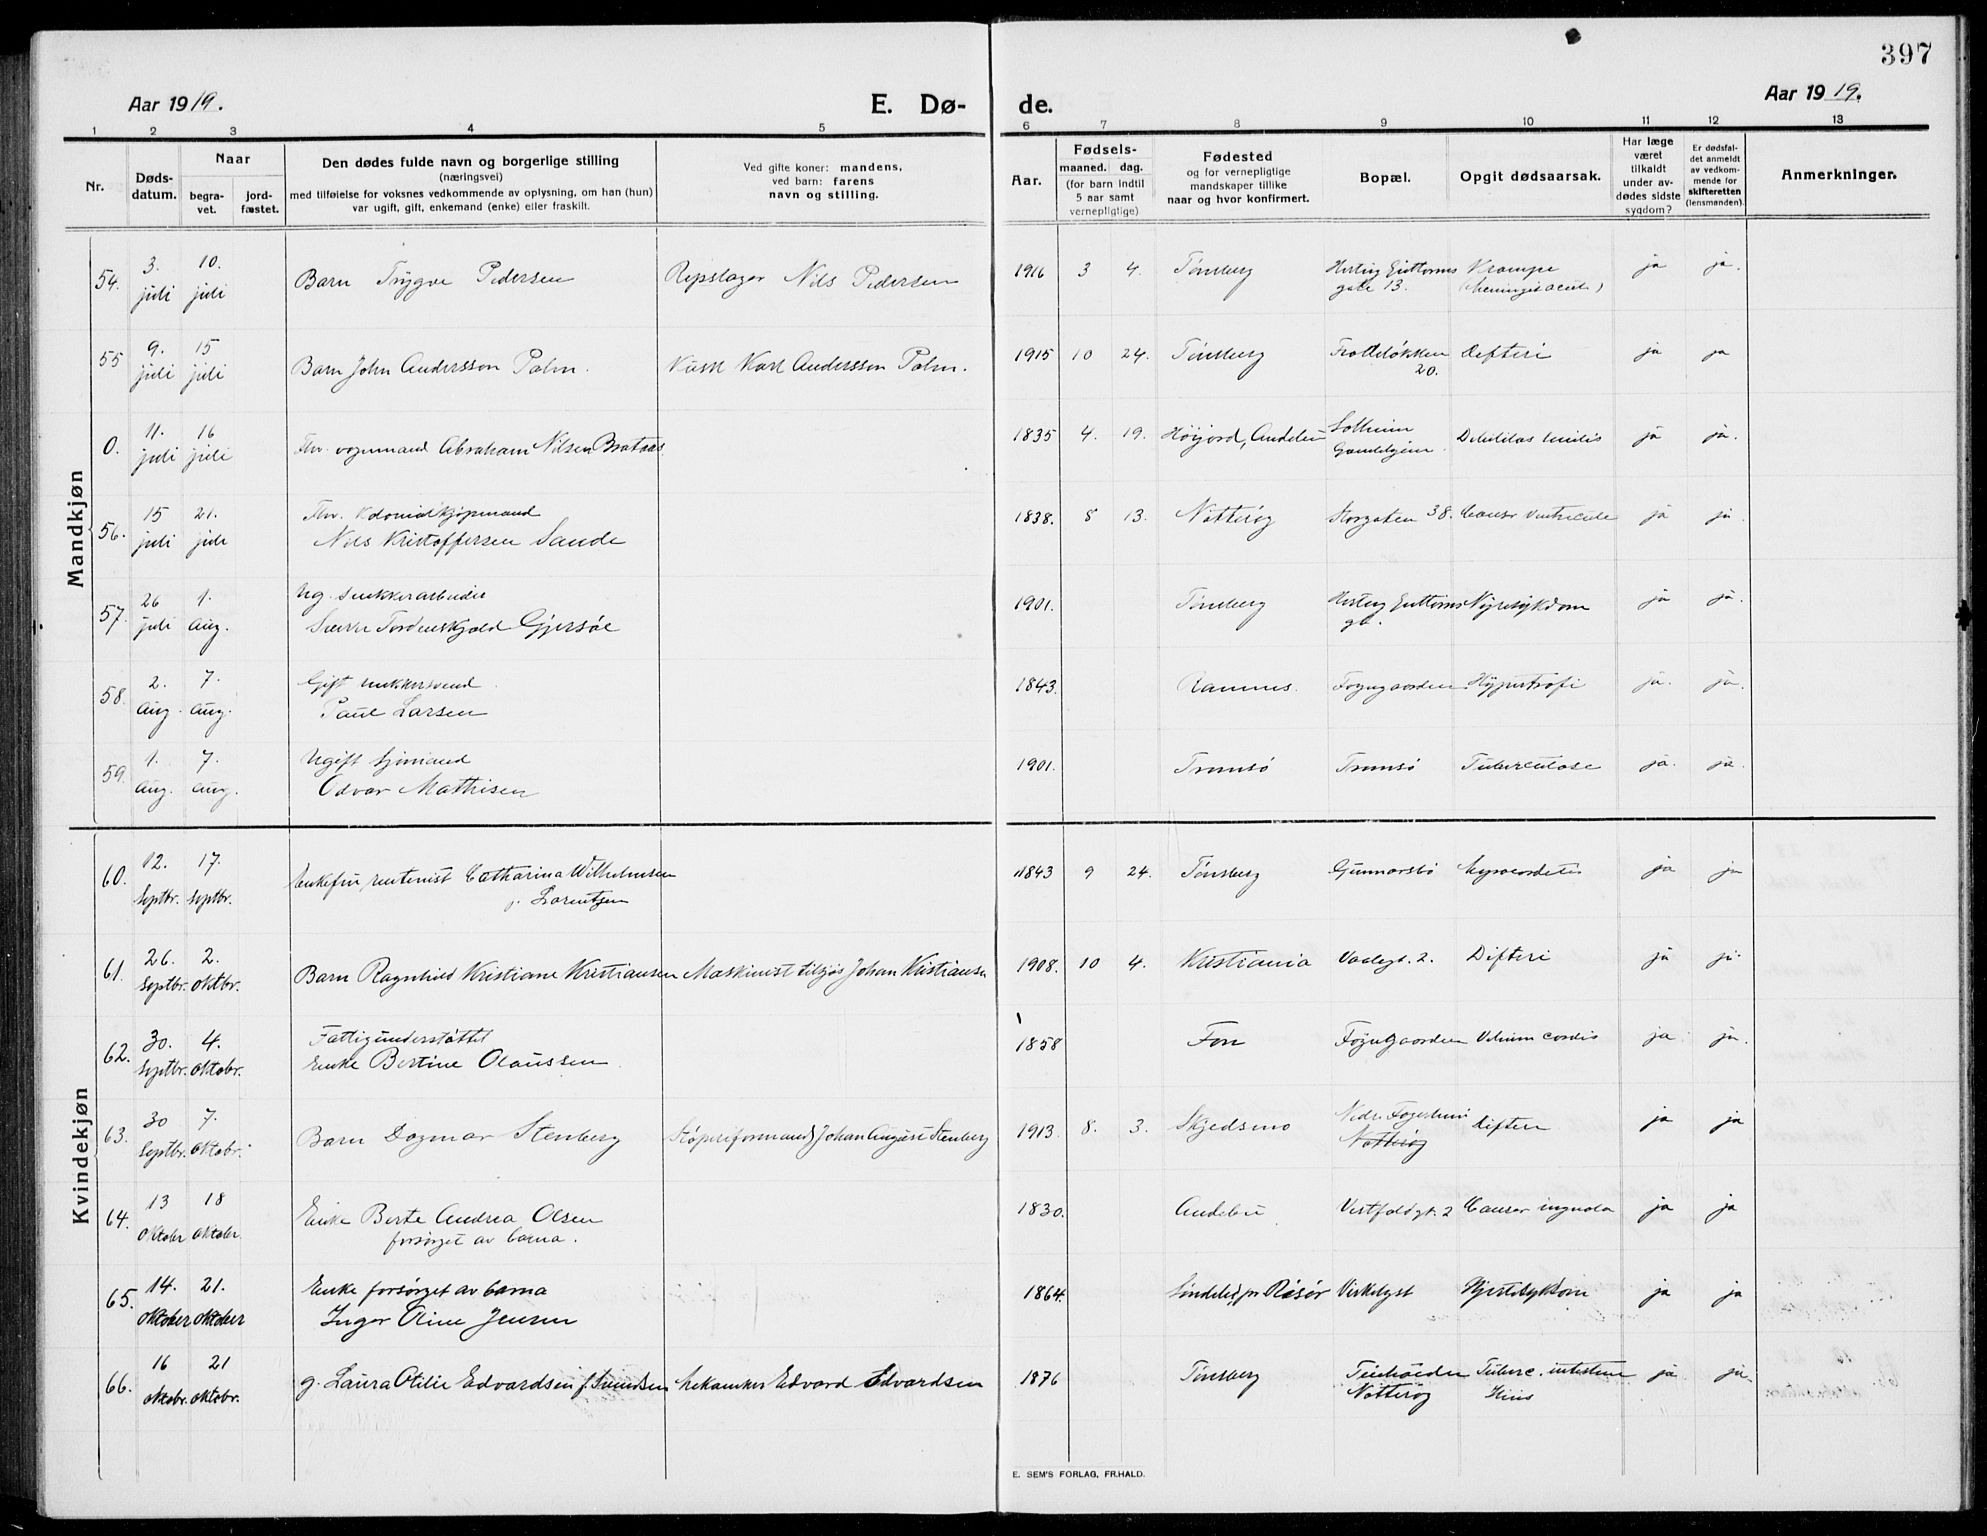 397
Aar 1919.
E. Dø-
de.
Aar 1919.
1 2 3 4 5 6 7 8 9 10 11 12 13
Nr.
Døds-
datum.
Naar
begra-
vet.
jord-
fæstet.
Den dødes fulde navn og borgerlige stilling
(næringsvei)
med tilføielse for voksnes vedkommende av oplysning, om han (hun)
var ugift, gift, enkemand (enke) eller fraskilt.
Ved gifte koner: mandens,
ved barn: farens
navn og stilling.
Aar.
Fødsels-
maaned. dag.
(for barn indtil
5 aar samt
vernepligtige)
Fødested
og for vernepligtige
mandskaper tillike
naar og hvor konfirmert.
Bopæl.
Opgit dødsaarsak.
Har læge
været
tilkaldt
under av-
dødes sidste
sygdom?
Er dødsfal-
det anmeldt
av vedkom-
mende for
skifteretten
(lensmanden).
Anmerkninger.
Mandkjøn
54. 3. juli 10. juli Barn Trygve Pedersen Repslager Nils Pedersen 1916 3 4. Tønsberg Hertug Guttorms gate 13. Krampe ja ja.
55 9. juli 15 juli Barn John Andersson Palm. Karl Andersson Palm. 1915 10 24. Tønsberg Trolleløkken 20. Difteri ja ja
0. 11. juli 16 juli Fhv. vognmand Abraham Nilsen Brataas 1835 4. 19. Høijord, Andebu Solheim Debilitas senilis ja ja.
56. 15 juli 21. juli Fhv. Kolonialkjøpmand
Nils Kristoffersen Sande 1838. 8 13. Nøtterøy Storgaten 38. Cancer Ventriculi ja ja.
57. 26 juli 1. Aug. Ug.
Tordenskjold Gjersøe 1901. Tønsberg Hertug Guttorms gt. Nyresykdom ja ja.
58. 2. Aug. 7. Aug. Gift
Paul Larsen 1843. Ramnes. Føyngaarden Hypertrofi ja. ja.
59. 1. Aug. 7. Aug. Ugift sjømand
Odvar Mathisen 1901. Tromsø Tromsø Tuberculose ja. ja.
Kvindekjøn
60. 12. Septbr. 17. Septbr. Enkefru, rentenist Catharina Wilhelmsen
f. Lorentzen 1843 9 24. Tønsberg Gunnarsbø ja ja
61. 26. Septbr. 2. oktbr. Barn Ragnhild Kristiane Kristiansen Maskinist tilsjøs Johan Kristiansen 1908. 10 4. Kristiania Difteri ja ja.
62. 30. Septbr. 4. oktobr. Fattigunderstøttet
Enke Bertine Olaussen. 1858 Fon Føyngaarden Vitium cordis ja ja.
63. 30 Septbr. 7. oktobr. Barn Dagmar Stenberg Støperiformand Johan August Stenberg 1913. 8. 3. Skjedsmo Nøtterøy Difteri ja ja
64. 13 oktober 18 oktober. Enke Berte Andrea Olsen
forsørget av barna. 1830. Andebu Vestfoldgt. 2 Cancer ja ja
65. 14. oktober 21. oktober Enke forsørget av barna
Inger Oline Jensen 1864. Søndeled pr Risør Virkelyst Hjertesykdom ja ja
66. 16 oktobr. 21 oktobr. g. Laura Otilie Edvardsen f. Svendsen Mekaniker Edvard Edvardsen 1876 Tønsberg Teiehøiden Nøtterøy Tuberc. ja ja
E. SEM'S FORLAG, FR.HALD.